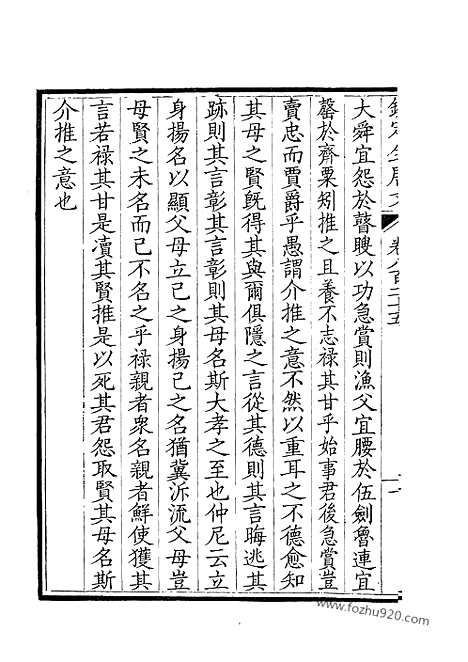 欽定全唐文 卷八百二十五
大舜宜怨於瞽瞍以功急賞則漁父宜腰於伍劍魯連宜
罄於齊粟矧推之且養不志祿其甘乎始事君後急賞豈
賣忠而賈爵乎愚謂介推之意不然以重耳之不德愈知
其母之賢旣得其與爾俱隱之言從其德則其言晦逃其
跡則其言彰其言彰則其母名斯大孝之至也仲尼云立
身揚名以顯父母立己之身揚己之名猶冀泝流父母豈
母賢之未名而已不名之乎祿親者衆名親者鮮使獲其
言若祿其甘是瀆其賢推是以死其君怨取賢其母名斯
介推之意也
www.fozhu920.com